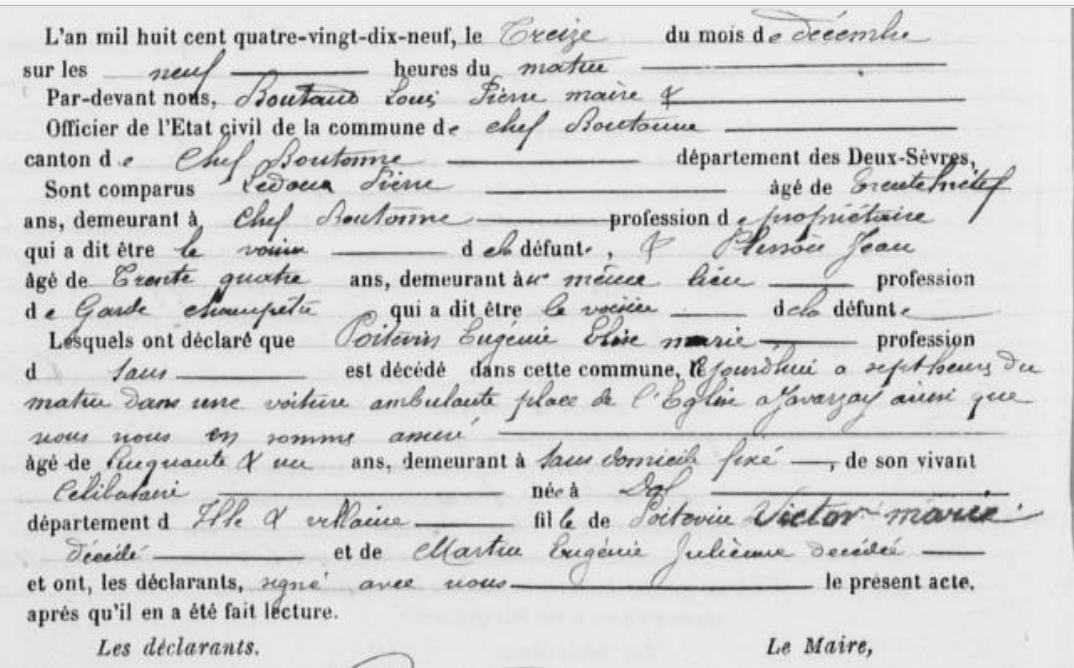 L'an mil huit cent quatre-vingt-dix-neuf, le Treize du mois de décembre
sur les neuf heures du matin
Par-devant nous, Boutaud Louis Pierre maire &
Officier de l'Etat civil de la commune de chef Boutonne
canton de Chef Boutonne département des Deux-Sèvres,
Sont comparus Ledoux Pierre âgé de
ans, demeurant à Chef Boutonne profession de propriétaire
qui a dit être le voisin de la défunte, & Jean
âgé de Trente quatre ans, demeurant au même lieu profession
de Garde champetre qui a dit être le voisin de la défunte
Lesquels ont déclaré que Poitevin Eugénie Elise marie profession
d sans est décédé dans cette commune, a sept heures du
matin dans une voiture ambulante place de l'Eglise a Javarzay ainsi que
nous nous en sommes assuré
âgé de Cinquante & un ans, demeurant à sans domicile fixé, de son vivant
Célibataire née à Dol
département d Ille & villaine fille de Poitevin Victor marie
décédé et de Martin Eugénie Julienne decédée
et ont, les déclarants, signé avec nous le présent acte,
après qu'il en a été fait lecture.
Les déclarants. Le Maire,